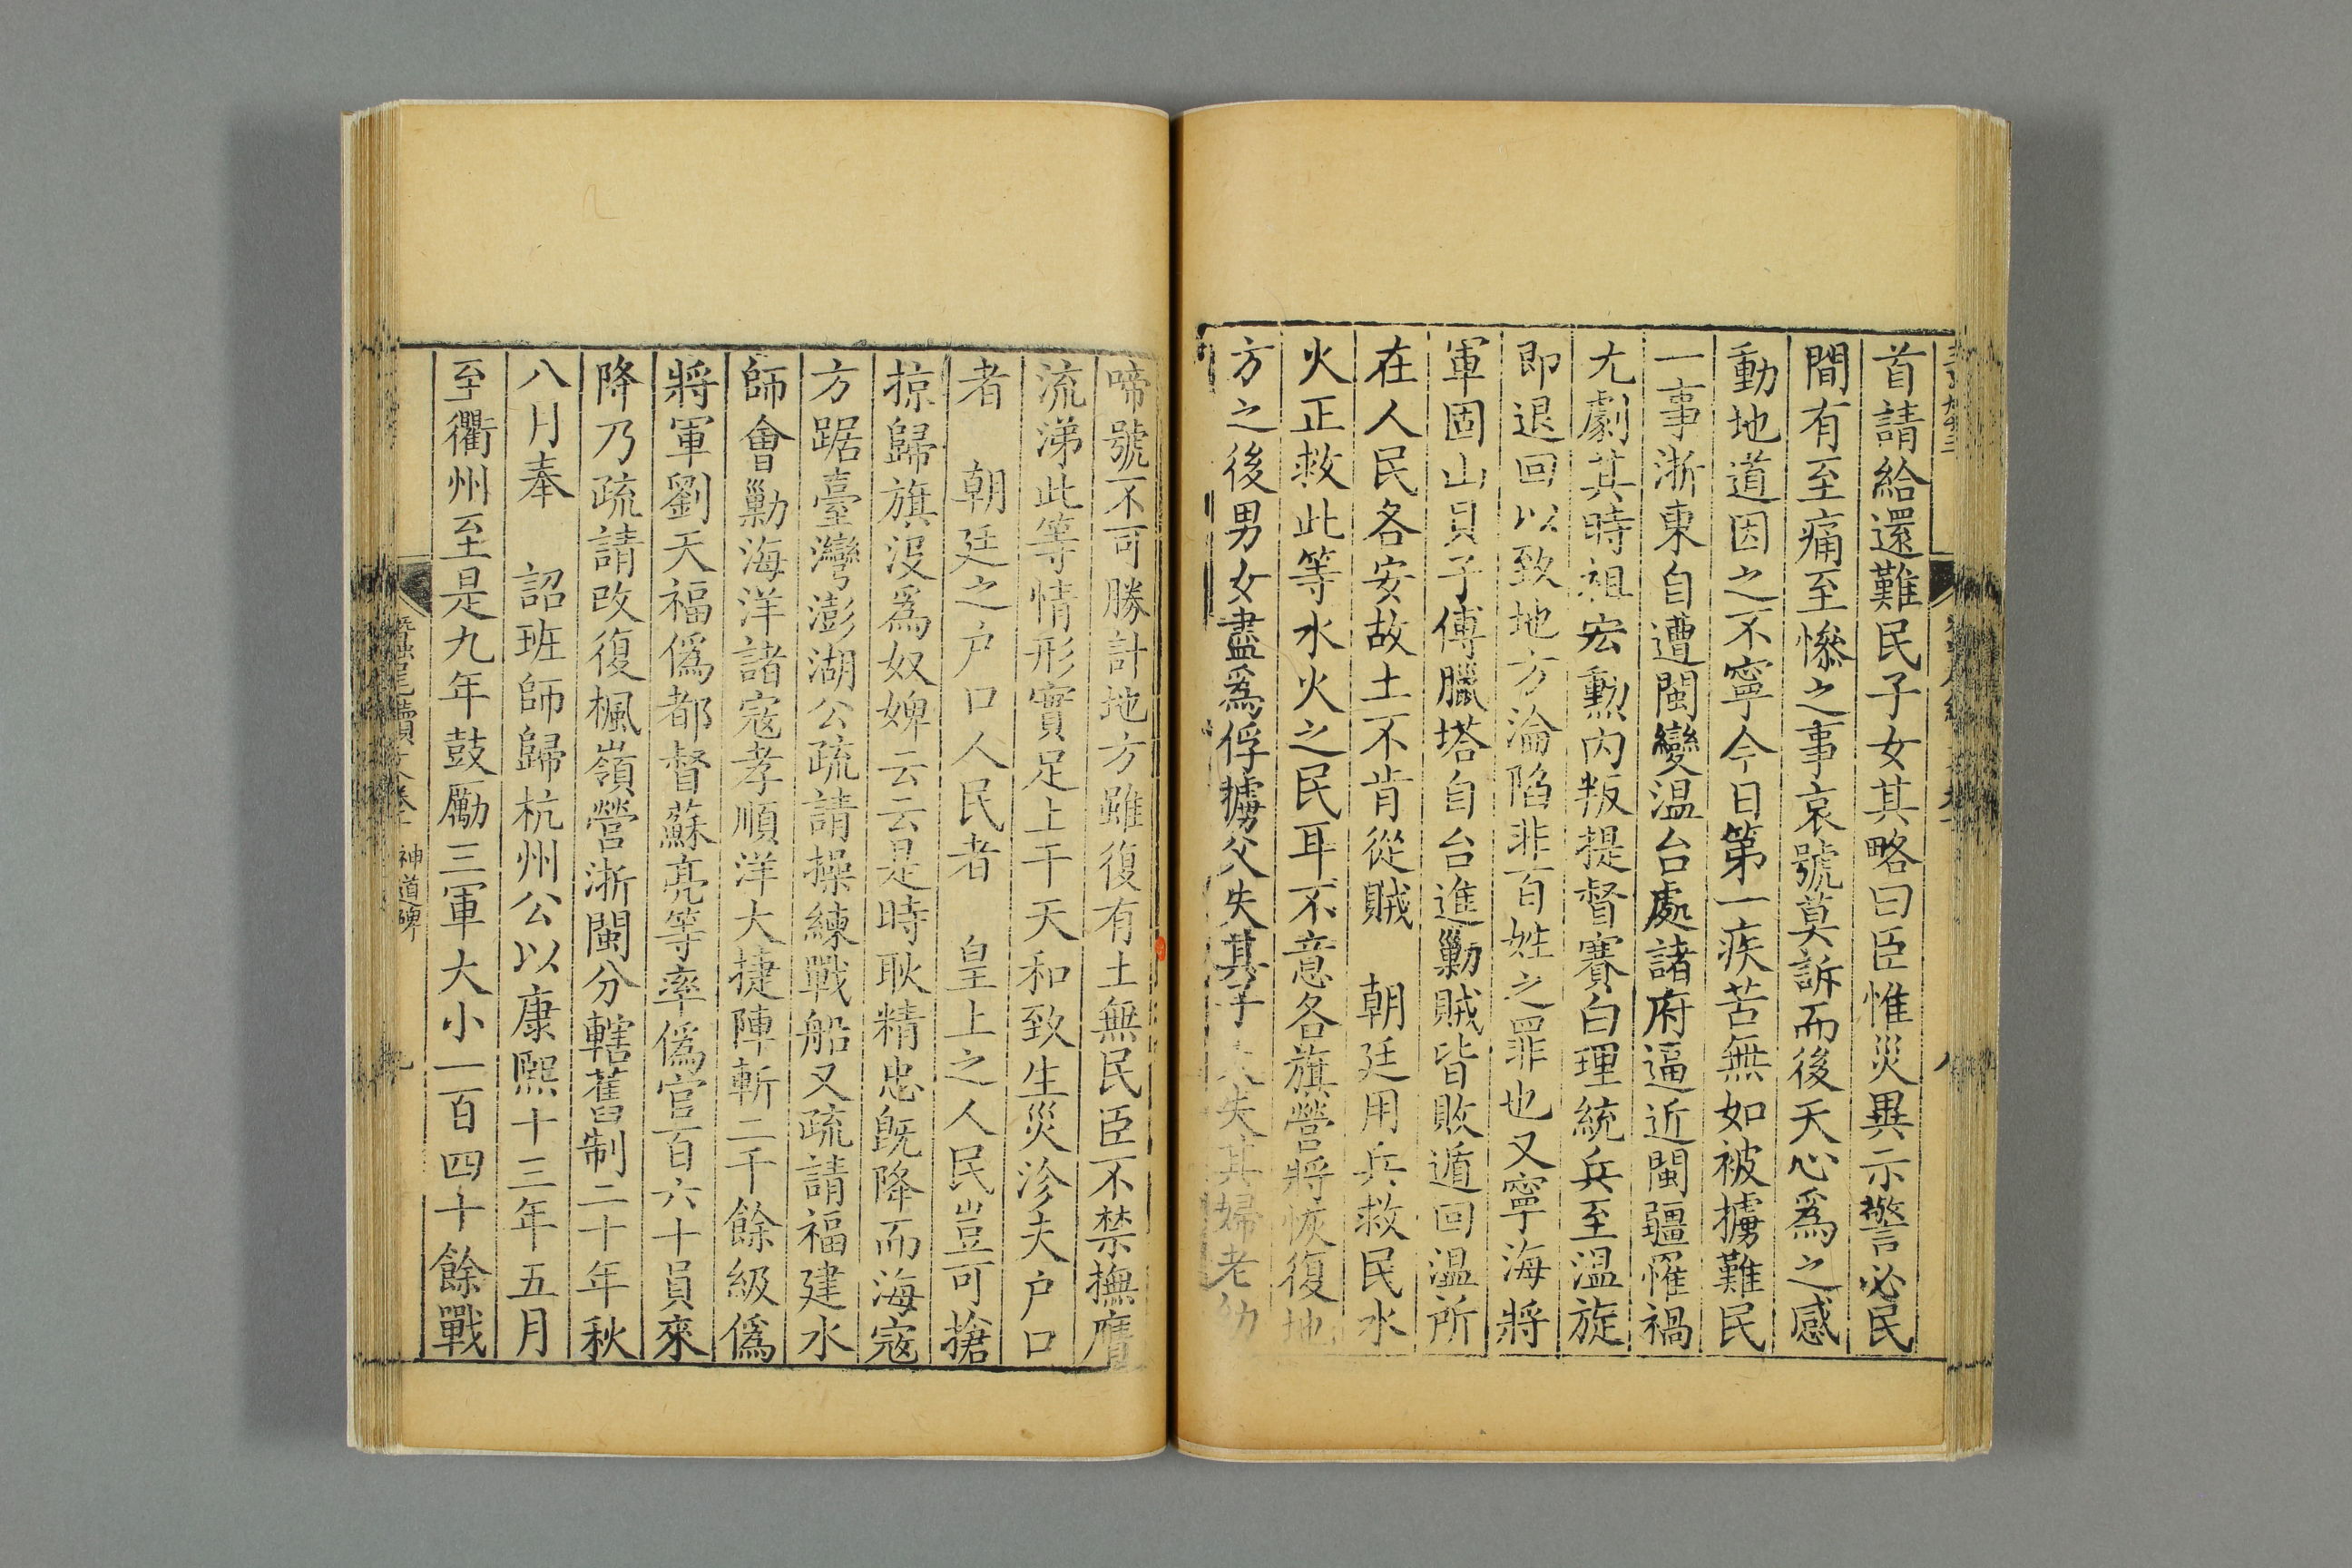 首請給還難民子女其略曰臣惟災異示警必民
間有至痛至慘之事哀號莫訴而後天心爲之感
動地道因之不寧今日第一疾苦無如被擄難民
一事浙東自遭閩變温台處諸府逼近閩疆罹禍
尤劇其時祖宏勲内叛提督賽白理統兵至温旋
即退回以致地方淪陷非百姓之罪也又寧海將
軍固山貝子傅臘塔自台進勦賊皆敗遁回温所
在人民各安故土不肯從賊 朝廷用兵救民水
火正救此等水火之民耳不意各旗營將恢復地
方之後男女盡爲俘擄父失其子夫失其婦老幼
啼號不可勝計地方雖復有土無民臣不禁撫膺
流涕此等情形實足上干天和致生災沴夫户口
者 朝廷之户口人民者 皇上之人民豈可搶
掠歸旗没爲奴婢云云是時耿精忠旣降而海寇
方踞臺灣澎湖公疏請操練戰船又疏請福建水
師會勦海洋諸寇孝順洋大捷陣斬二千餘級僞
將軍劉天福僞都督蘇亮等率僞官百六十員來
降乃疏請改復楓嶺營浙閩分轄舊制二十年秋
八月奉 詔班師歸杭州公以康熙十三年五月
至衢州至是九年鼓勵三軍大小一百四十餘戰
蠶尾續文卷 神道碑 九